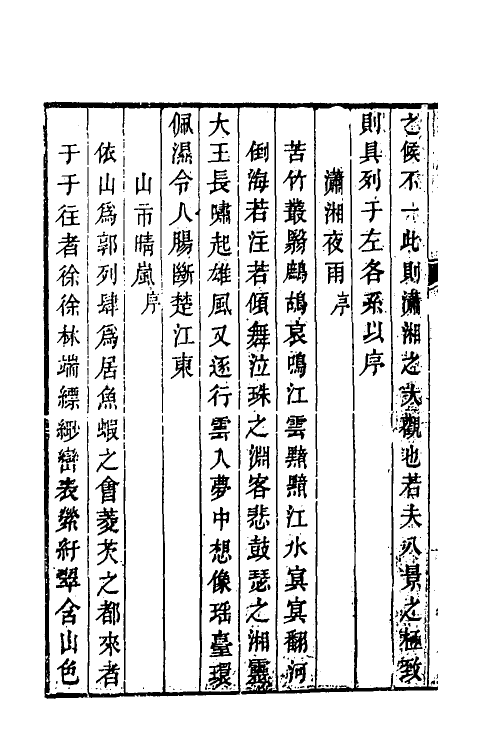 之候不一此則瀟湘之大觀也若夫八景之極致
則具列于左各系以序
瀟湘夜雨序
苦竹叢翳鷓鴣哀鳴江雲黯黯江水冥冥翻河
倒海若注若傾舞泣珠之淵客悲鼓瑟之湘靈
大王長嘯起雄風又逐行雲入夢中想像瑤臺環
佩濕令人腸斷楚江東
山市晴嵐序
依山爲郭列肆爲居魚蝦之會菱芡之都來者
于于往者徐徐林端縹緲巒表縈紆翠含山色